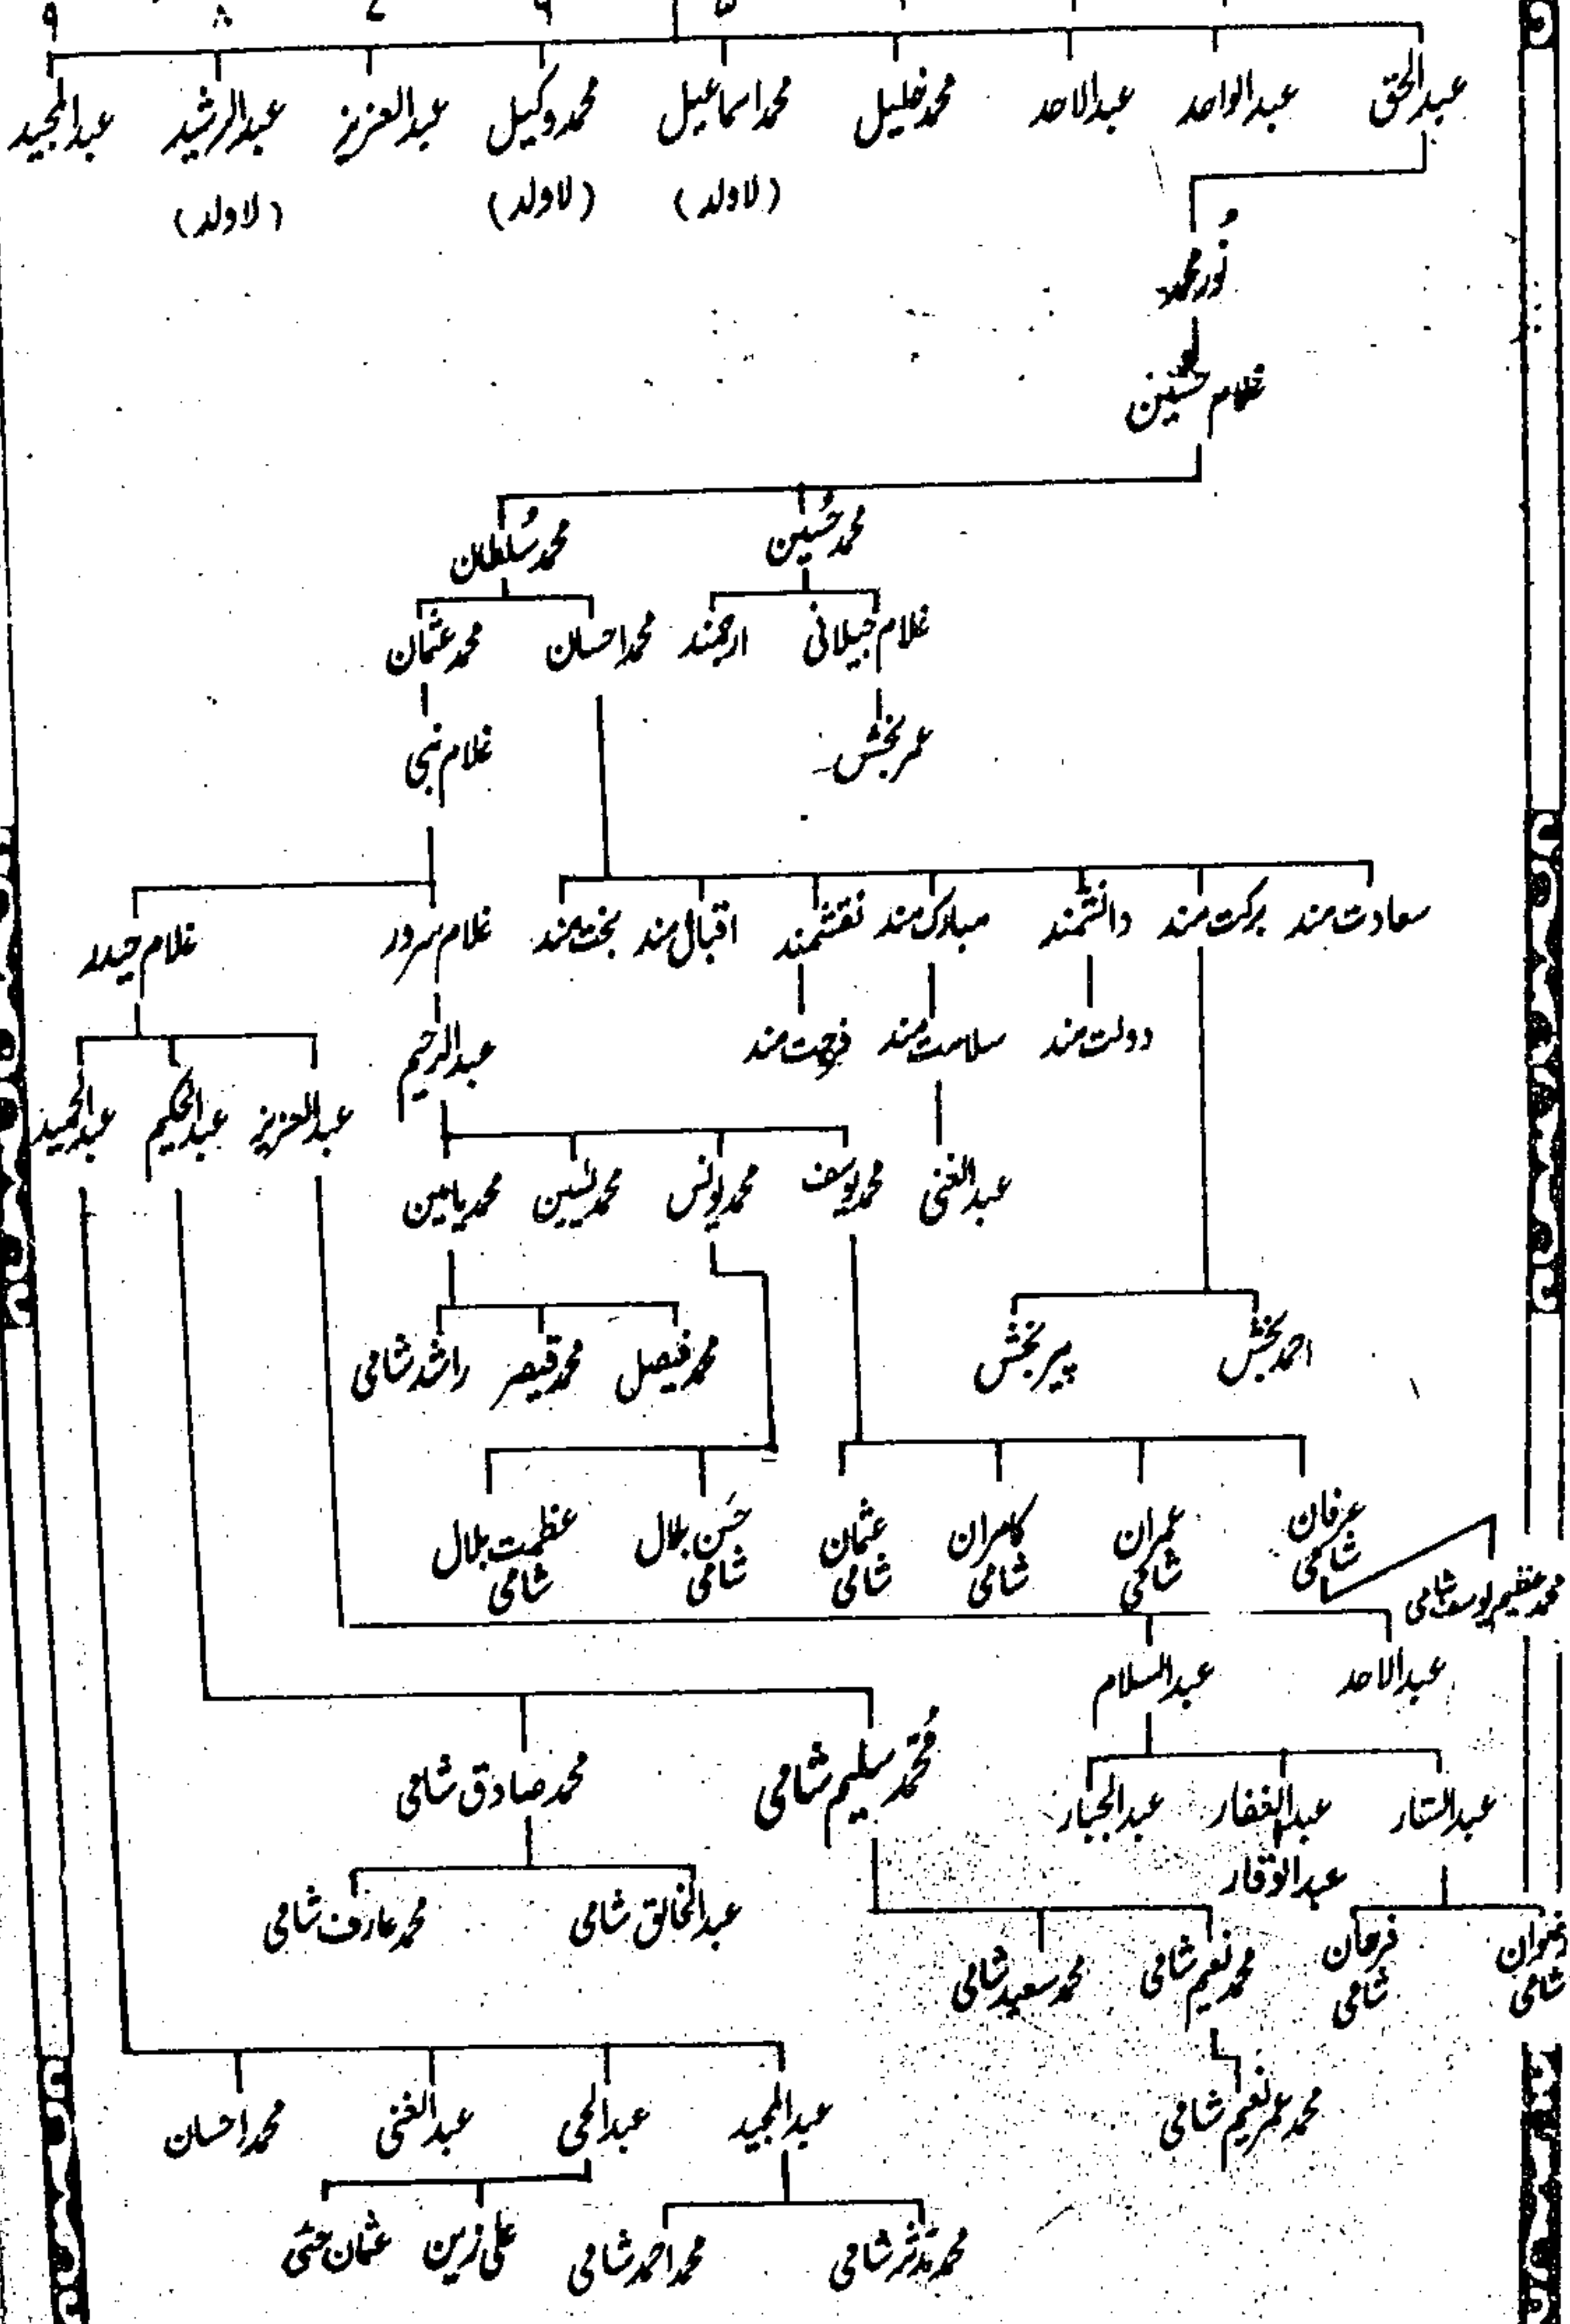 ۹ ۸ ۷ ۶ ۵
عبدالحق عبدالواحد عبدالاحد محمد خلیل محمد اسماعیل محمد وکیل عبدالعزیز عبدالرشید عبدالمجید
(لاولد) (لاولد) (لاولد)
نُور محمد
غلام حسین
محمد حُسین محمد سُلطان
غلام جیلانی ارجمند محمد احسان محمد عثمان
عمر بخش غلام نبی
سعادت مند برکت مند دانشمند مبارک مند نقشمند اقبال مند بخت مند غلام سرور غلام حیدر
دولت مند سلامت مند فرحت مند عبدالرحیم
عبدالعزیز عبدالحکیم عبدالحمید
عبدالغنی محمد یوسف محمد یونس محمد یٰسین محمد یامین
احمد بخش پیر بخش محمد فیصل محمد قیصر راشد شامی
عرفان شامی عمران شامی کامران شامی عثمان شامی حسن بلال شامی عظمت بلال شامی
محمد عظیم یوسف شامی
عبدالاحد عبدالسلام
محمد سلیم شامی محمد صادق شامی
عبدالستار عبدالغفار عبدالجبار
عبدالوقار
عبدالخالق شامی محمد عارف شامی
رضوان شامی فرحان شامی محمد نعیم شامی محمد سعید شامی
محمد عمر نعیم شامی
عبدالمجید عبدالحی عبدالغنی محمد احسان
محمد مدثر شامی محمد احمد شامی علی زین عثمان حئی